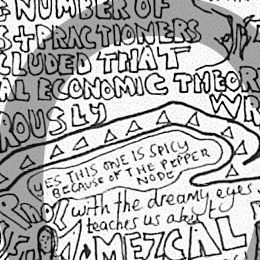 NUMBER OF
S + PRACTIONERS
CLUDED THAT
AL ECONOMIC THEOR
ROUSLY WR
YES THIS ONE IS SPICY
BECAUSE OF THE PEPPER
NODE
with the dreamy eyes
teaches us about
MEZCAL